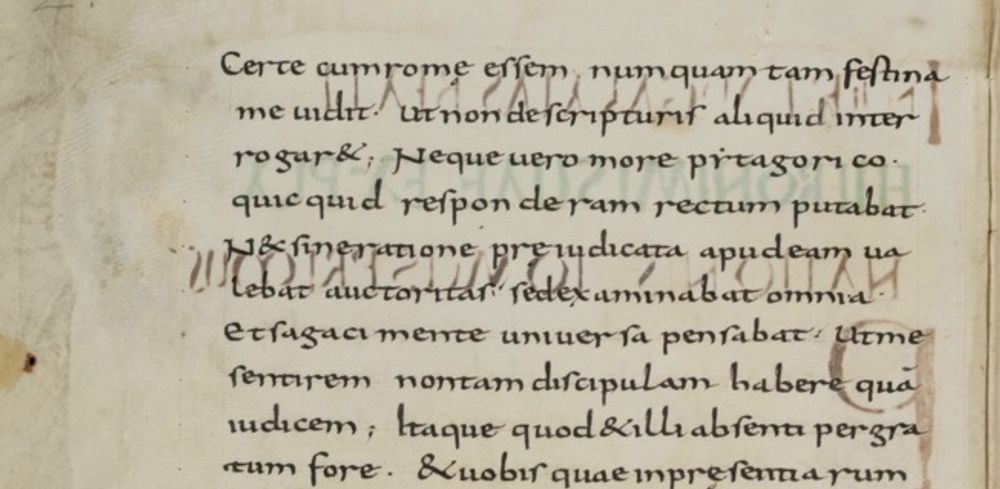 Certe cum romę essem, numquam tam festina
me uidit· Ut non de scripturis aliquid inter
rogar&; Neque uero more pẏtagorico·
quicquid responderam rectum putabat·
N& sine ratione pręiudicata apud eam ua
lebat auctoritas· sed examinabat omnia·
Et sagaci mente uniuersa pensabat· Ut me
sentirem non tam discipulam habere quā
iudicem; Itaque quod & illi absenti pergra
tum fore· & uobis quae in pręsentiarum